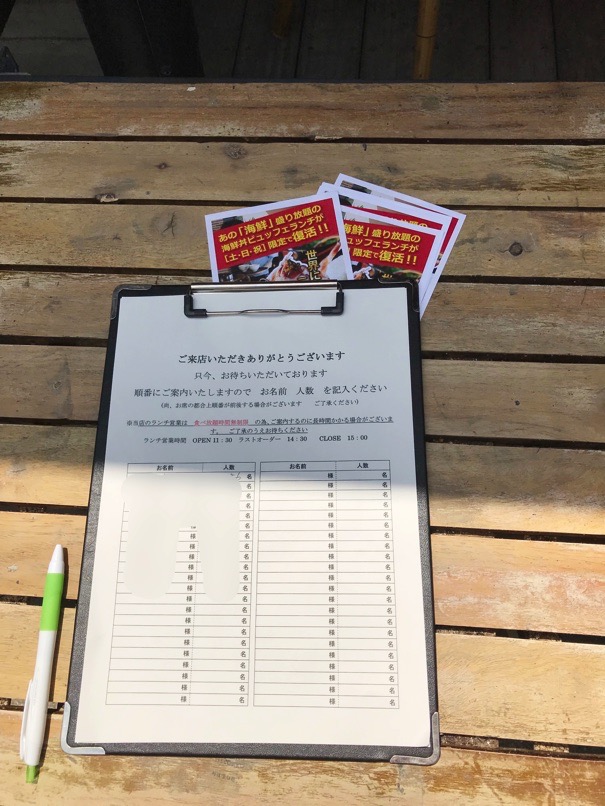 あの「海鮮」盛り放題の
海鮮丼ビュッフェランチが
[土・日・祝]限定で復活!!
世界に
海鮮」盛り放題の
ビュッフェランチが
限定で復活!!
ご来店いただきありがとうございます
只今、お待ちいただいております
順番にご案内いたしますので お名前 人数 を記入ください
(尚、お席の都合上順番が前後する場合がございます ご了承ください)
※当店のランチ営業は 食べ放題時間無制限 の為、ご案内するのに長時間かかる場合がございま
す。 ご了承のうえお待ちください
ランチ営業時間 OPEN 11:30 ラストオーダー 14:30 CLOSE 15:00
お名前 人数 お名前 人数
名 様 名
名 様 名
名 様 名
名 様 名
名 様 名
名 様 名
様 名 様 名
様 名 様 名
様 名 様 名
様 名 様 名
様 名 様 名
様 名 様 名
様 名 様 名
様 名 様 名
様 名 様 名
様 名 様 名
様 名 様 名
様 名 様 名
様 名 様 名
様 名 様 名
様 名 様 名
様 名 様 名